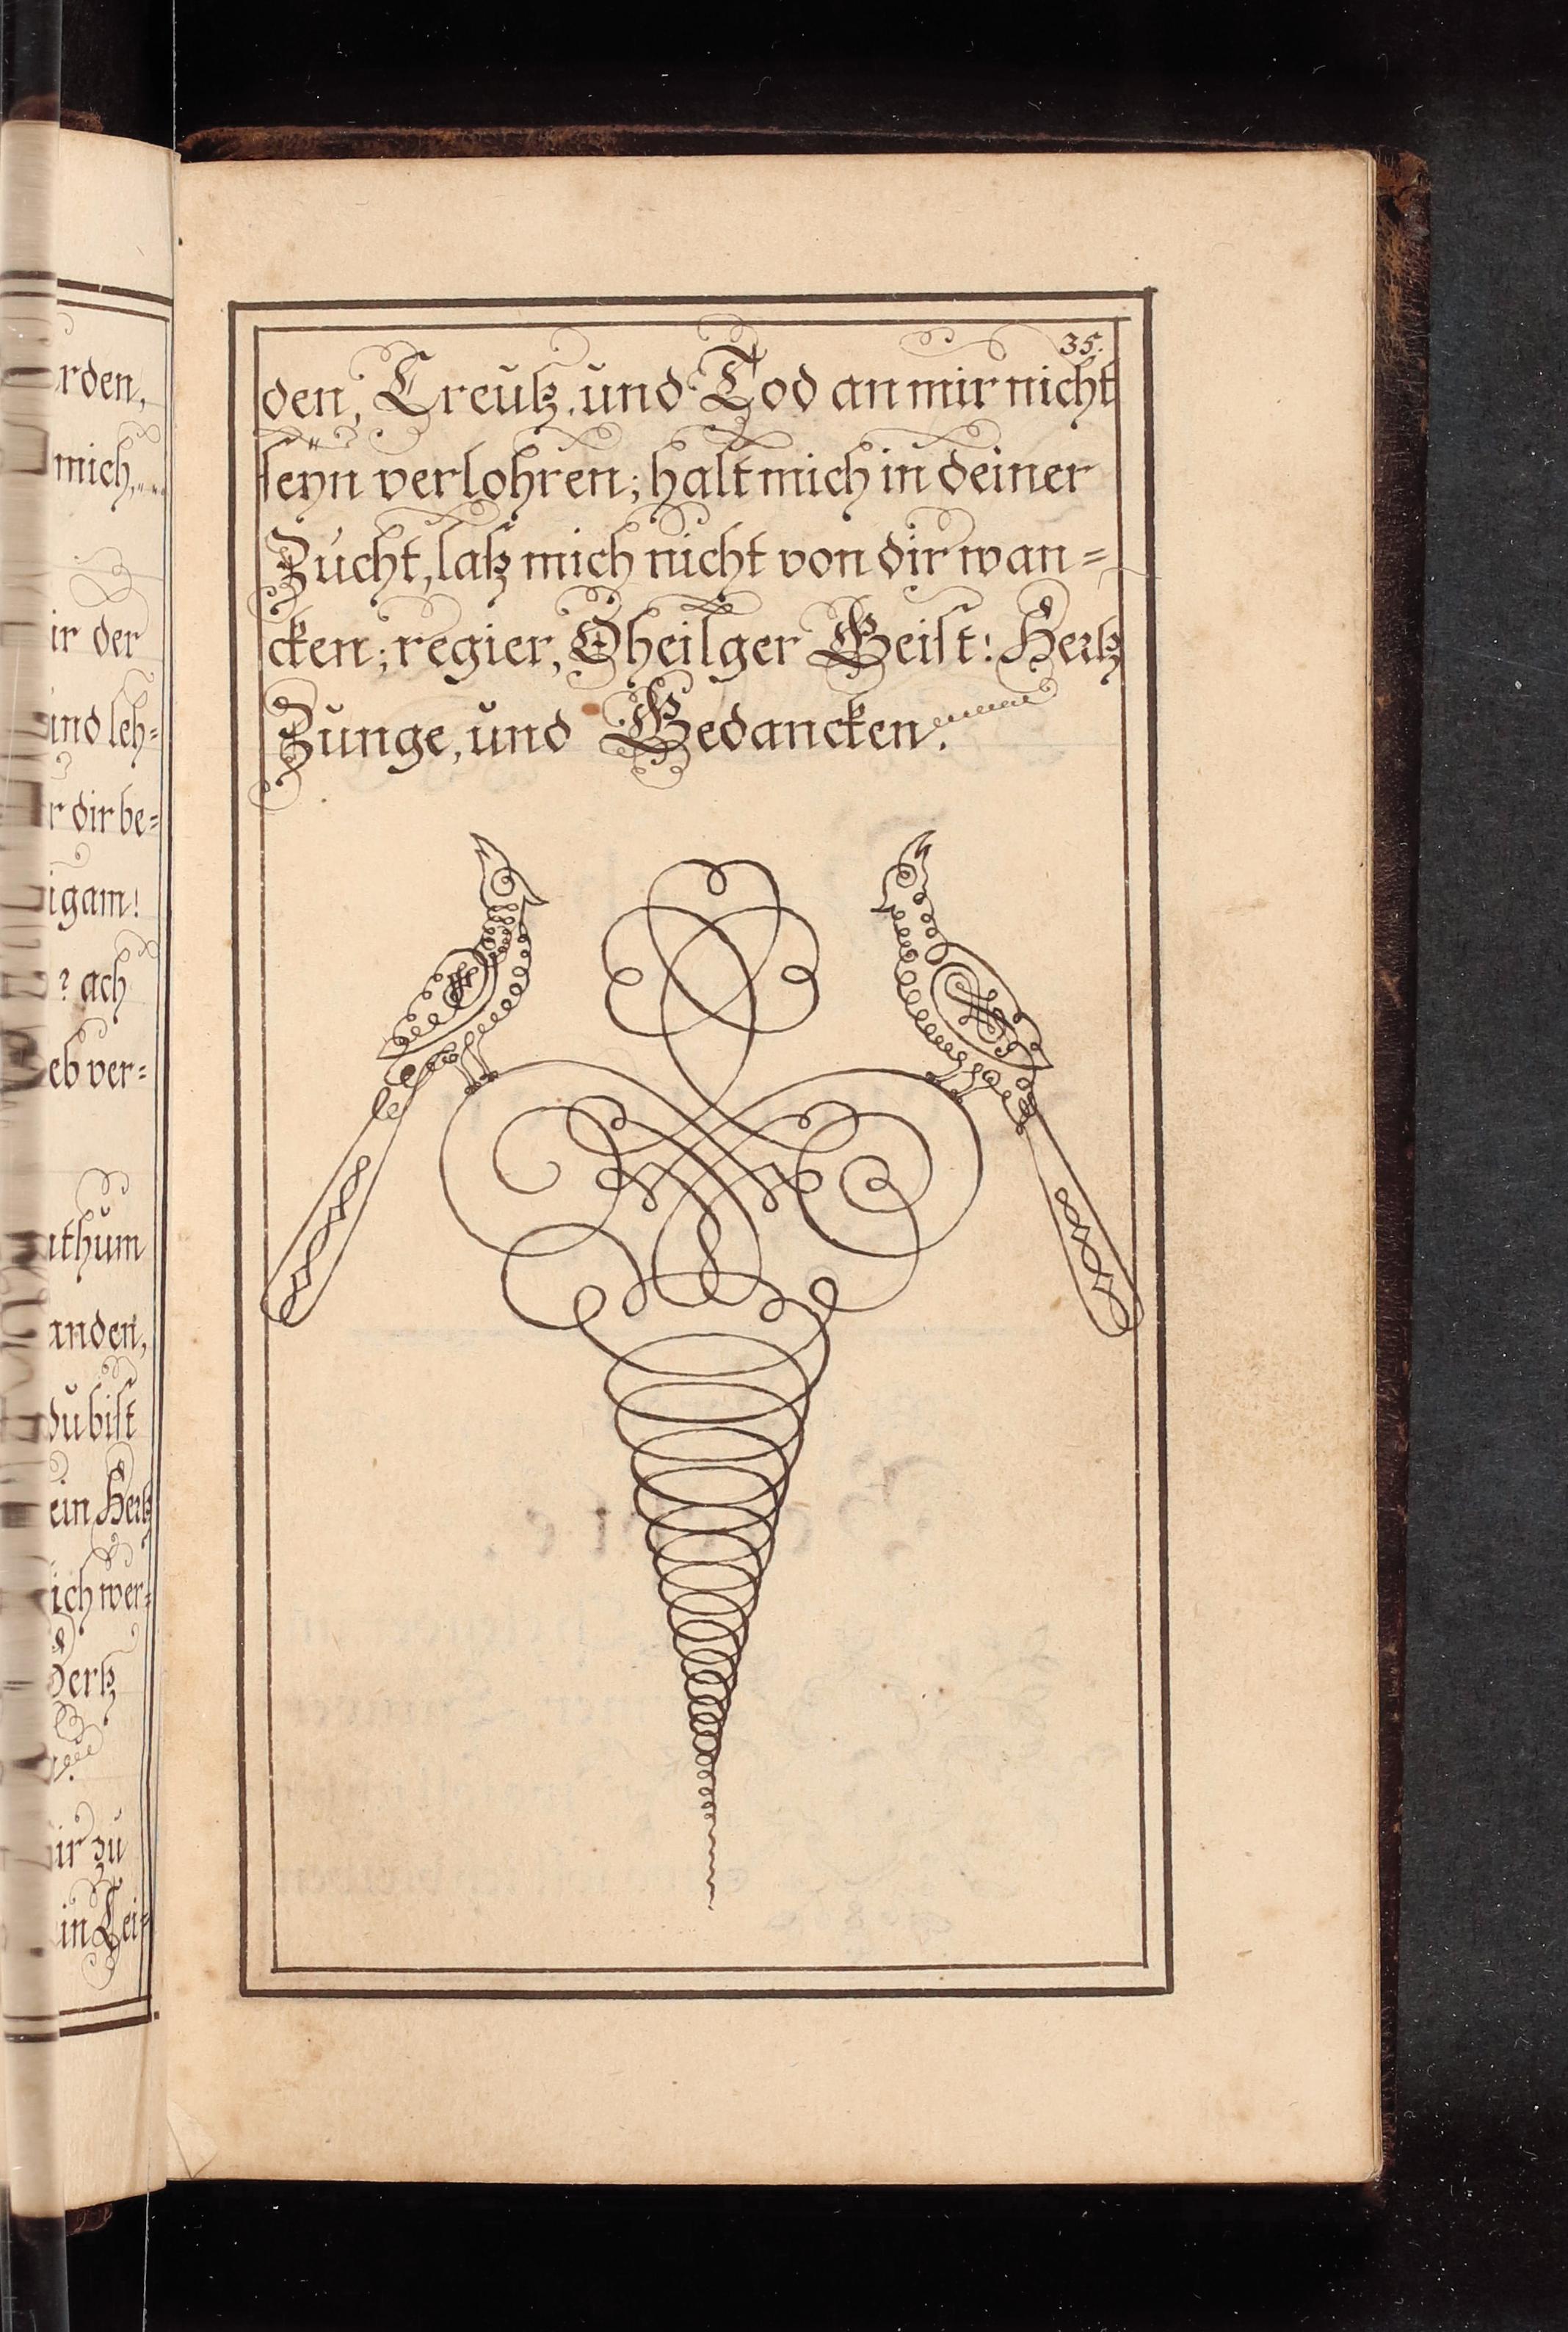 rden,
mich,
ir der
und leh=
r dir be=
igam!
? ach
eb ver=
athum
anden,
du bist
ein Hertz
ich wer=
Hertz
ir zu
in Lei=
35.
den, Creutz, und Tod an mir nicht
seÿn verlohren; halt mich in deiner
Zucht, laß mich nicht von dir wan=
cken; regier, O heilger Geist! Hertz
Zunge, und Gedancken.